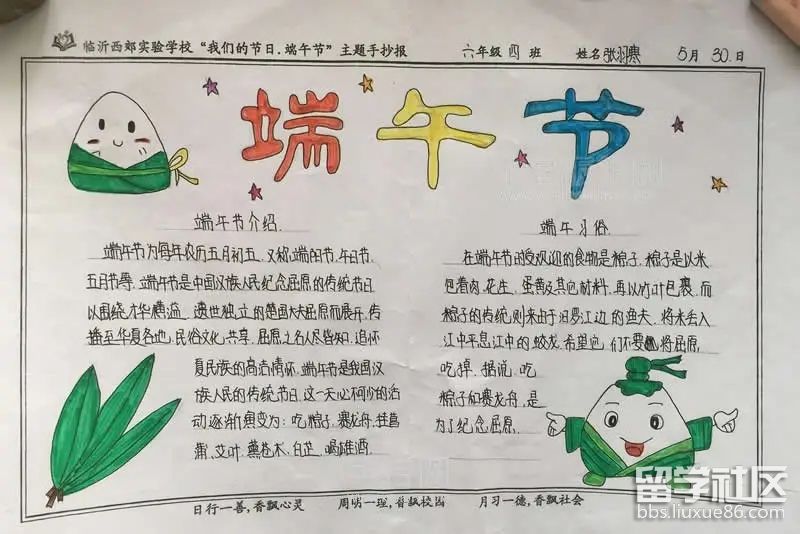 临沂西郊实验学校“我们的节日.端午节”主题手抄报 六年级 四 班 姓名 张羽寒 5月 30.日
端午节
端午节介绍.
端午节为每年农历五月初五. 又称.端阳节.午日节.
五月节等. 端午节是中国汉族人民纪念屈原的传统节日.
以围绕才华横溢. 遗世独立的楚国大夫屈原而展开, 传
播至华夏各地, 民俗文化共享. 屈原之名人尽皆知. 追怀
夏民族的高洁情怀. 端午节是我国汉
族人民的传统节日. 这一天必不可少的活
动逐渐演变为: 吃粽子. 赛龙舟. 挂菖
蒲, 艾叶. 熏苍术. 白芷. 喝雄酒.
端午习俗.
在端午节时受欢迎的食物是粽子. 粽子是以米
包着肉. 花生. 蛋黄及其他材料. 再以竹叶包裹. 而
粽子的传统则来由于汨罗江边的渔夫. 将米丢入
江中平息江中的蛟龙. 希望他们不要将屈原
吃掉. 据说. 吃
粽子和赛龙舟. 是
为了纪念屈原.
日行一善,香飘心灵 周明一理,香飘校园 月习一德,香飘社会
留学社区
bbs.liuxue86.com